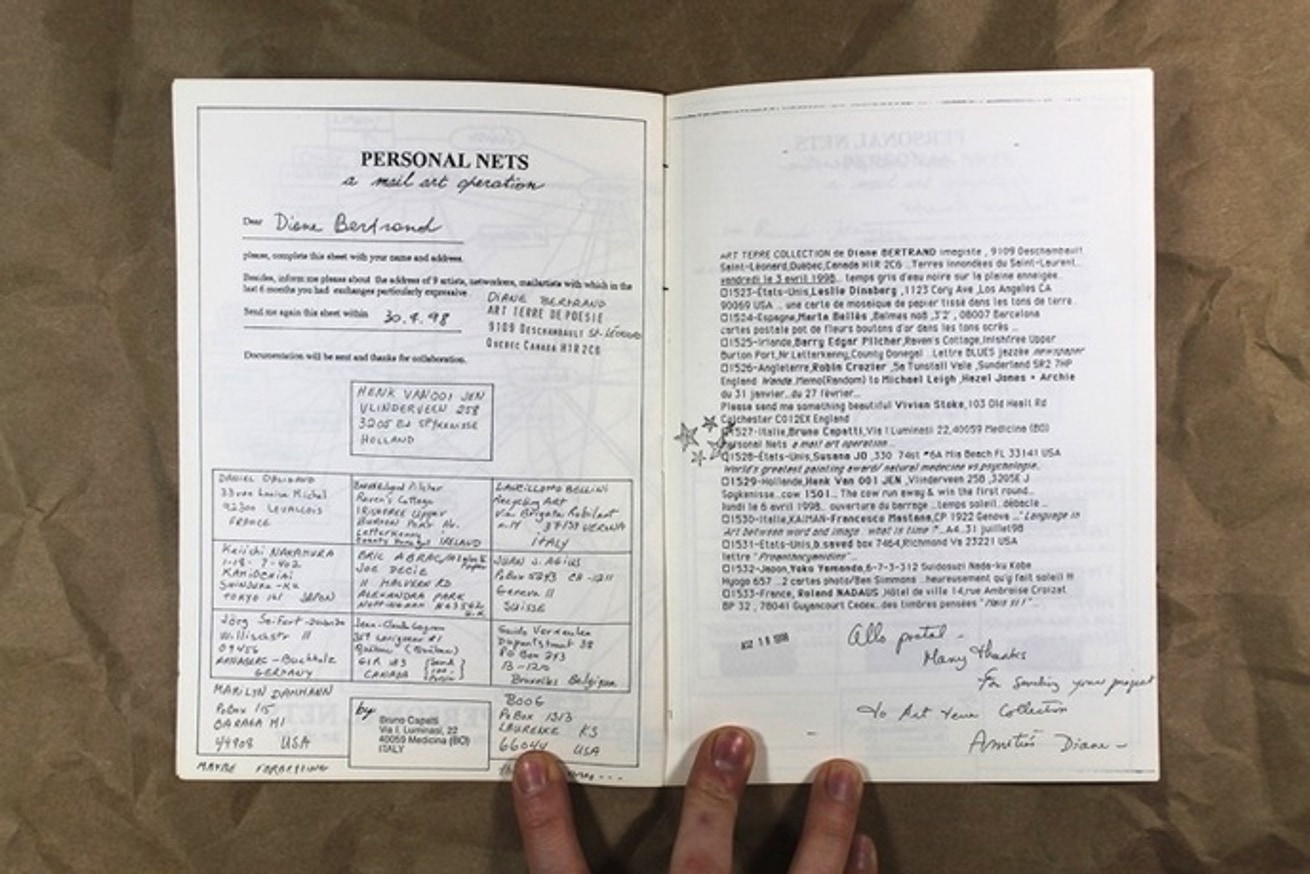 PERSONAL NETS
a mail art operation
Dear Diane Bertrand
please, complete this sheet with your name and address.
Besides, inform me please about the address of 9 artists, networkers, mailartists with which in the
last 6 months you had exchanges particularly expressive
Send me again this sheet within 30.4.98
DIANE BERTRAND
ART TERRE DE POESIE
9109 DESCHAMBAULT ST-LÉONARD
QUEBEC CANADA H1R 2C6
Documentation will be sent and thanks for collaboration.
HENK VAN001 JEN
VLINDERVEEN 258
3205 EJ SPYKENISSE
HOLLAND
DANIEL DALIGAND
33 rue Louise Michel
92300 LEVALLOIS
FRANCE
Pilcher
Raven's Cottage
Upper
Burton Port Nr.
Letterkenny
IRELAND
BELLINI
Recycling Art
Via Brigata Robilant
37137 VERONA
ITALY
Keiichi NAKAMURA
1-18-7-402
KAMIOCHIAI
SHINJUKU-KU
TOKYO 161 JAPON
ERIC
JOE DECIE
11 MALVERN RD
ALEXANDRA PARK
NOTTINGHAM
JUAN J. AGIUS
PoBox 5243 CH-1211
Geneva 11
SUISSE
Jörg Seifert
Willischstr 11
09456
ANNABERG-Buchholz
GERMANY
Jean-Claude Gagnon
359 Lavigueur #1
Québec (Québec)
G1R 1B3
CANADA
Guido Vermeulen
38
Po Box 273
B-1210
Bruxelles Belgique
MARILYN DAMMANN
PoBox 115
BARAGA MI
49908 USA
by
Bruno Capatti
Via I. Luminasi, 22
40059 Medicina (BO)
ITALY
BOOG
PoBox 1313
LAWRENCE KS
66044 USA
MAYBE FORGETTING
ART TERRE COLLECTION de Diane BERTRAND imagiste , 9109 Deschambault
Saint-Léonard,Québec,Canada H1R 2C6 ...Terres innondées du Saint-Laurent...
vendredi le 3 avril 1998... temps gris d'eau noire sur la plaine enneigée.
1523-États-Unis,Leslie Dinsberg ,1123 Cory Ave ,Los Angeles CA
90069 USA ... une carte de mosaïque de papier tissé dans les tons de terre.
1524-Espagne,Merta Bellés ,Balmes no8 ,3'2' , 08007 Barcelona
cartes postale pot de fleurs boutons d'or dans les tons ocrés ...
1525-Irlande,Barry Edgar Pilcher,Raven's Cottage,Inishfree Upper
Burton Port,Nr.Letterkenny,County Donegal ...Lettre BLUES jazzée newspaper
1526-Angleterre,Robin Crozier ,5a Tunstall Vale ,Sunderland SR2 7HP
England Memo(Random) to Michael Leigh ,Hazel Jones + Archie
du 31 janvier...du 27 février...
Please send me something beautiful Vivian Stoke,103 Old Healt Rd
Colchester CO12EX England
1527-Italie,Bruno Capatti,Via I Luminasi 22,40059 Medicina (BO)
Personal Nets a mail art operation...
1528-États-Unis,Susana JO ,330 74st #6A Mia Beach FL 33141 USA
World's greatest painting award/ natural medecine vs psychologie.
1529-Hollande,Henk Van 001 JEN ,Vlinderveen 258 ,3205EJ
Spykenisse...cow 1501... The cow run away & win the first round...
lundi le 6 avril 1998... ouverture du barrage ...temps soleil...débâcle ...
1530-Italie,KAIMAN-Francesco Mastana,CP 1922 Genova ..."Language is
Art between word and image : what is time ?"...A4..31 juillet98
1531-États-Unis,b.saved box 7464,Richmond Va 23221 USA
lettre "Proanthocyanidins"...
1532-Japon,Yoko Yamanda,6-7-3-312 Suidosuzi Nada-ku Kobe
Hyogo 657 ...2 cartes photo/Ben Simmons ...heureusement qu'y fait soleil !!!
1533-France, Roland NADAUS ,Hôtel de ville 14,rue Ambroise Croizat
BP 32 , 78041 Guyancourt Cedex...des timbres pensées
1998
Allo postal -
Many thanks
For sending your project
to Art Terre Collection
Amitiés Diane -